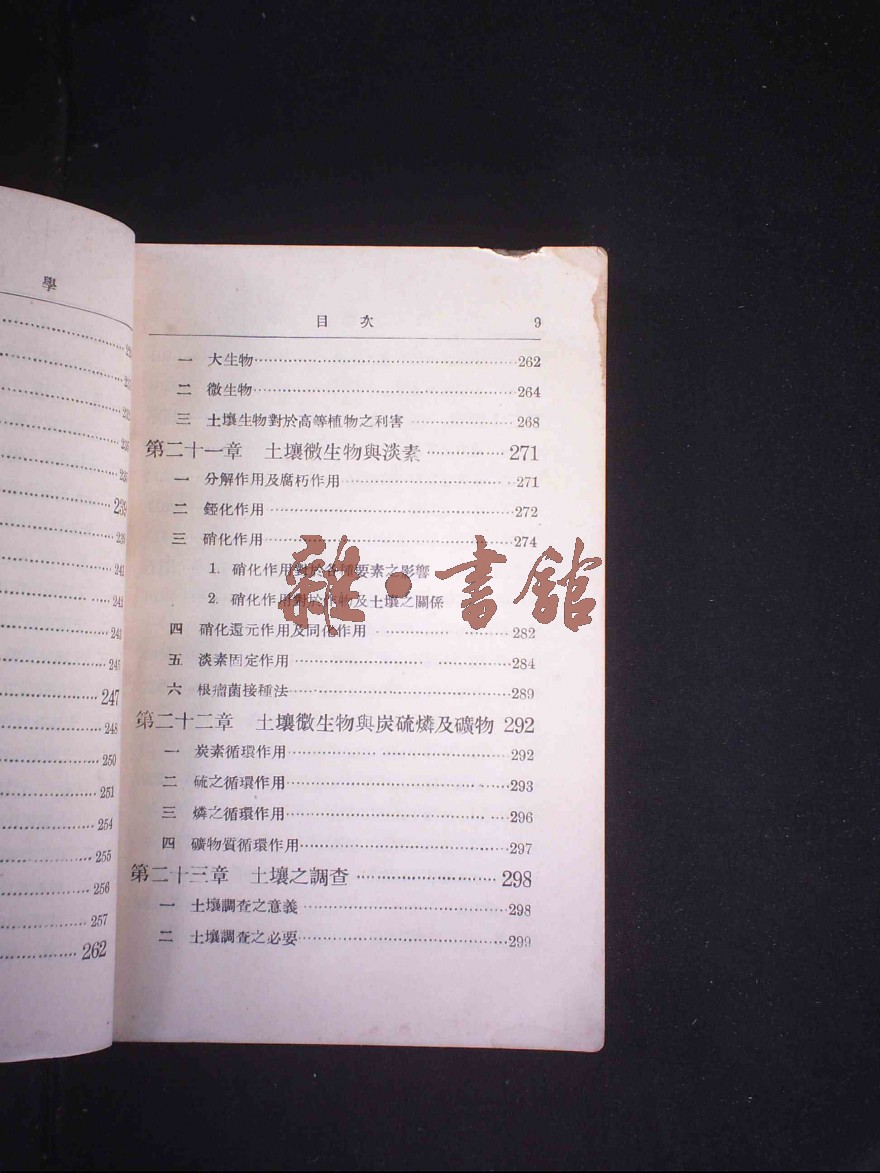 學
239
239
241
241
243
245
247
248
250
251
254
255
256
257
262
目 次 9
一 大生物 262
二 微生物 264
三 土壤生物對於高等植物之利害 268
第二十一章 土壤微生物與淡素 271
一 分解作用及腐朽作用 271
二 錏化作用 272
三 硝化作用 274
1. 硝化作用對於各種要素之影響
2. 硝化作用對於作物及土壤之關係
四 硝化還元作用及同化作用 282
五 淡素固定作用 284
六 根瘤菌接種法 289
第二十二章 土壤微生物與炭硫燐及礦物 292
一 炭素循環作用 292
二 硫之循環作用 293
三 燐之循環作用 296
四 礦物質循環作用 297
第二十三章 土壤之調查 298
一 土壤調查之意義 298
二 土壤調查之必要 299
雜·書館